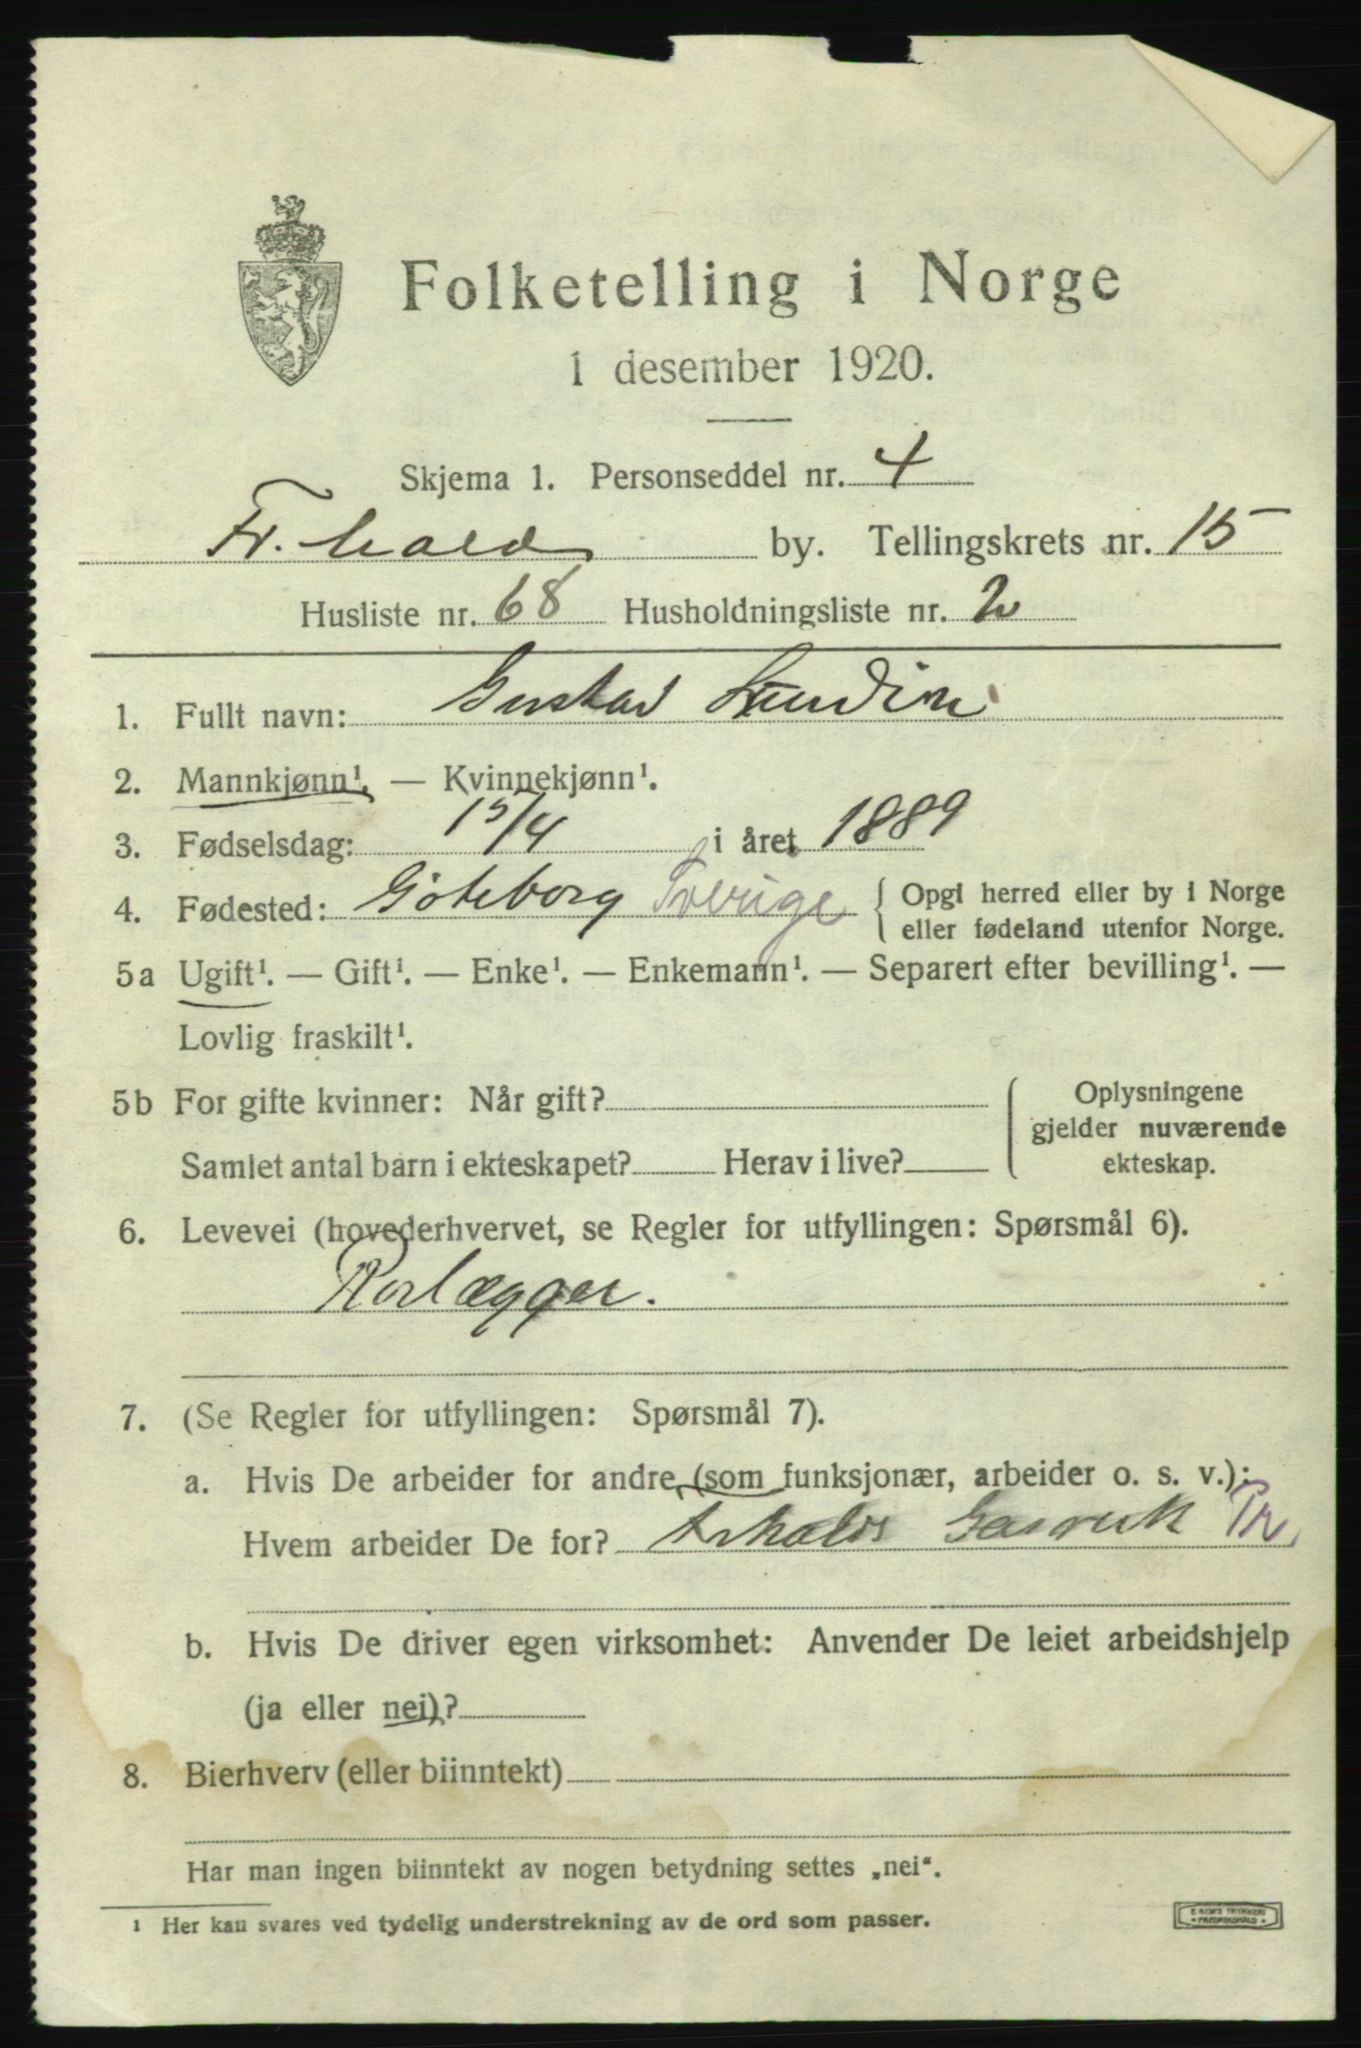 Folketelling i Norge
1 desember 1920.
Skjema 1. Personseddel nr. 4
Fr.hald by. Tellingskrets nr. 15
Husliste nr. 68 Husholdningsliste nr. 2
1. Fullt navn: Gustav Lundin
2. Mannkjønn¹. — Kvinnekjønn¹.
3. Fødselsdag: 15/4 i året 1889
4. Fødested: Göteborg Sverige { Opgi herred eller by i Norge
eller fødeland utenfor Norge.
5a Ugift¹. — Gift¹. — Enke¹. — Enkemann¹. — Separert efter bevilling¹. —
Lovlig fraskilt¹.
5b For gifte kvinner: Når gift? Oplysningene
gjelder nuværende
Samlet antal barn i ekteskapet? Herav i live? ekteskap.
6. Levevei (hovederhvervet, se Regler for utfyllingen: Spørsmål 6).
Rørlægger.
7. (Se Regler for utfyllingen: Spørsmål 7).
a. Hvis De arbeider for andre (som funksjonær, arbeider o. s. v.):
Hvem arbeider De for? Frhalds Gasverk
b. Hvis De driver egen virksomhet: Anvender De leiet arbeidshjelp
(ja eller nei)?
8. Bierhverv (eller biinntekt)
Har man ingen biinntekt av nogen betydning settes „nei“.
¹ Her kan svares ved tydelig understrekning av de ord som passer.
E. SEM'S TRYKKERI
• FREDRIKSHALD •